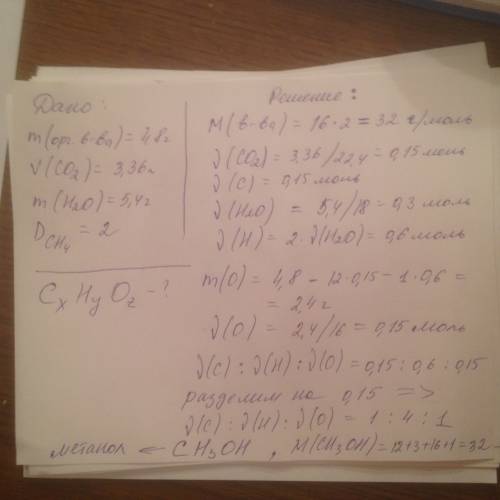 Дано:
m(орг. в-ва) = 4,8г
V(CO₂) = 3,36л
m(H₂O) = 5,4г
D CH₄ = 2
CxHyOz - ?
Решение:
M(в-ва) = 16·2 = 32 г/моль
ν(CO₂) = 3,36/22,4 = 0,15 моль
ν(C) = 0,15 моль
ν(H₂O) = 5,4/18 = 0,3 моль
ν(H) = 2·ν(H₂O) = 0,6 моль
m(O) = 4,8 - 12·0,15 - 1·0,6 =
= 2,4г
ν(O) = 2,4/16 = 0,15 моль
ν(C) : ν(H) : ν(O) = 0,15 : 0,6 : 0,15
разделим на 0,15 =>
ν(C) : ν(H) : ν(O) = 1 : 4 : 1
метанол ← CH₃OH, M(CH₃OH) = 12+3+16+1 = 32